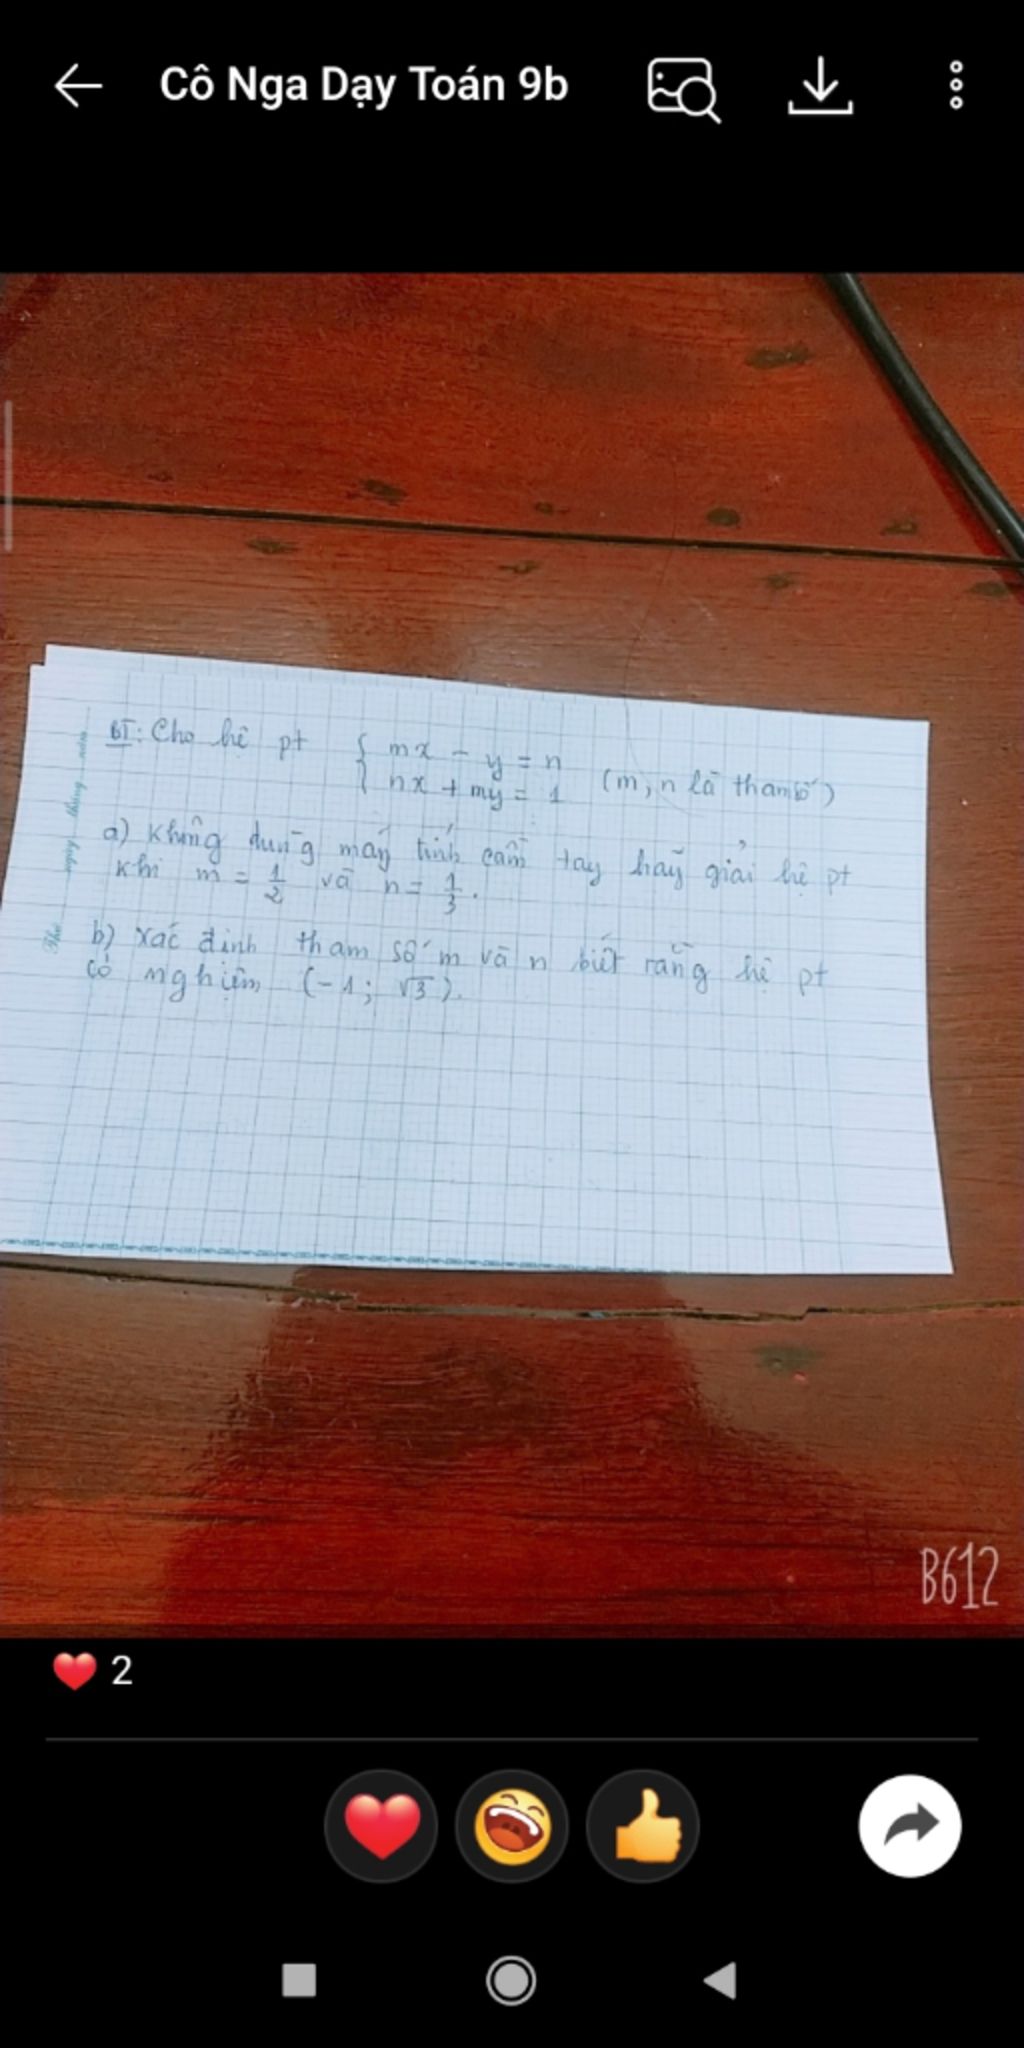 Cô Nga Dạy Toán 9b
BT: Cho hệ pt { mx - y = n
nx + my = 1 (m, n là tham số)
a) Không dùng máy tính cầm tay hãy giải hệ pt
khi m = 1/2 và n = 1/3.
b) Xác định tham số m và n biết rằng hệ pt
có nghiệm (-1; √3).
Thứ ngày tháng năm
B612
2